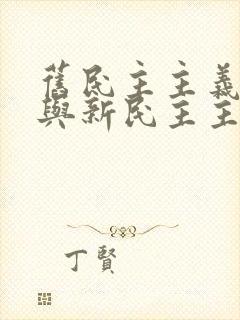 舊民主主義
與新民主主
丁賢